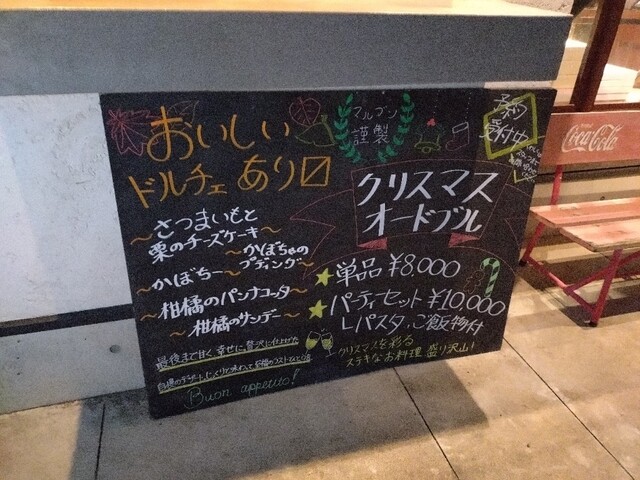 おいしい
ドルチェ あり〼
～さつまいもと
栗のチーズケーキ～
～かぼちゃの
プディング～
～かぼちー～
～柑橘のパンナコッタ
～柑橘のサンデー～
最後まで甘く幸せに、贅沢に仕上げた
Buon appetito!
マルブン
謹製
予約
受付中
クリスマス
オードブル
★単品 ¥8,000
★パーティセット ¥10,000
└パスタ、ご飯物付
クリスマスを彩る
ステキなお料理 盛り沢山!
Coca-Cola